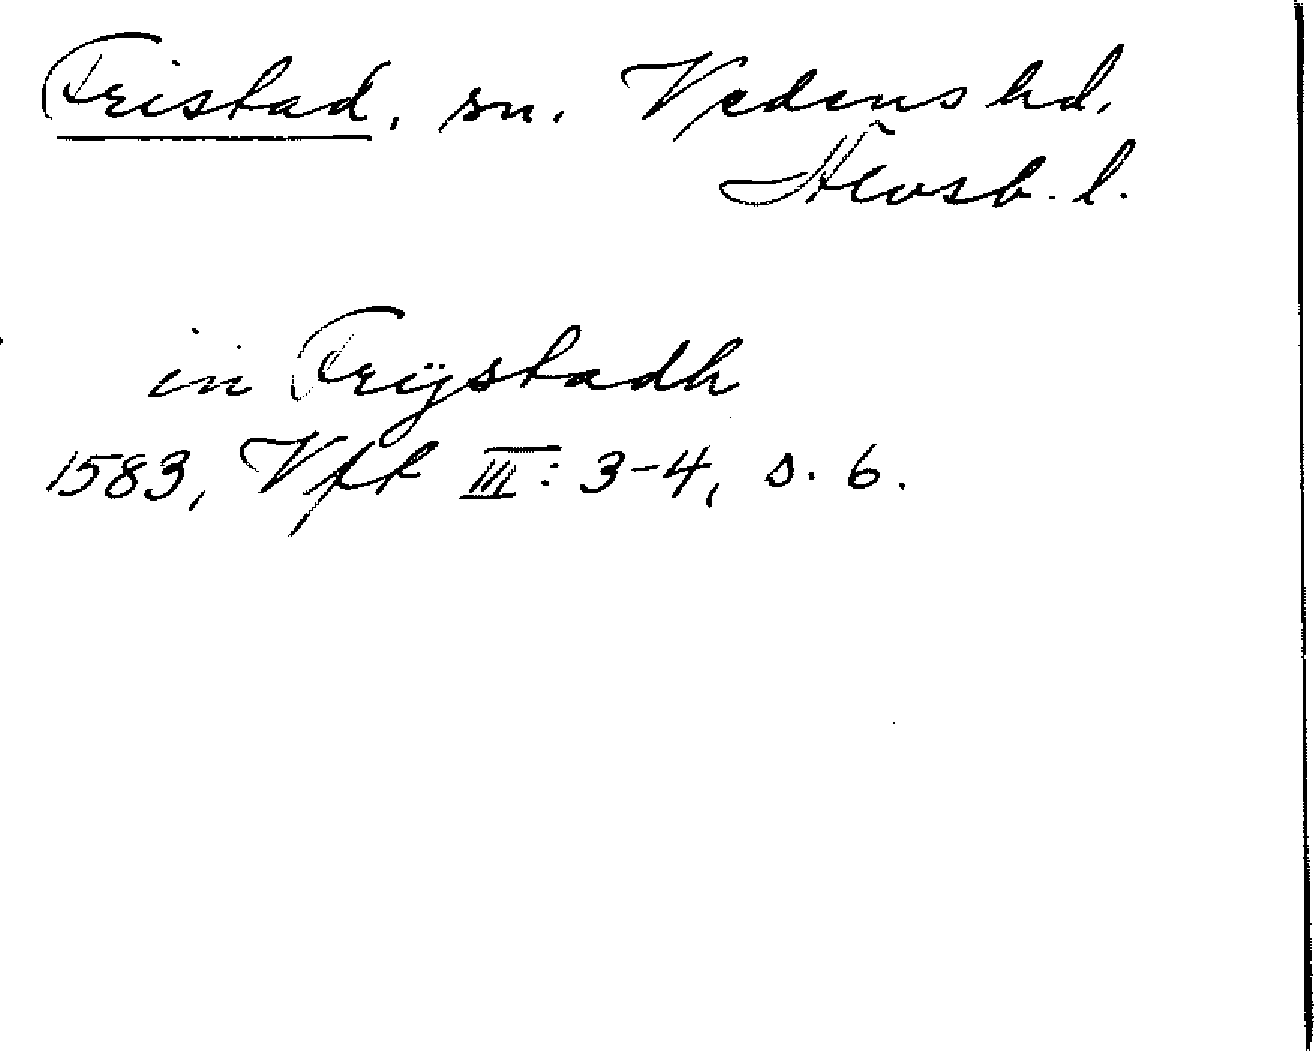 Fristad, sn. Vedens hd,
Älvsb. l.
in Frÿstadh
1583, Vfk III: 3-4, s. 6.